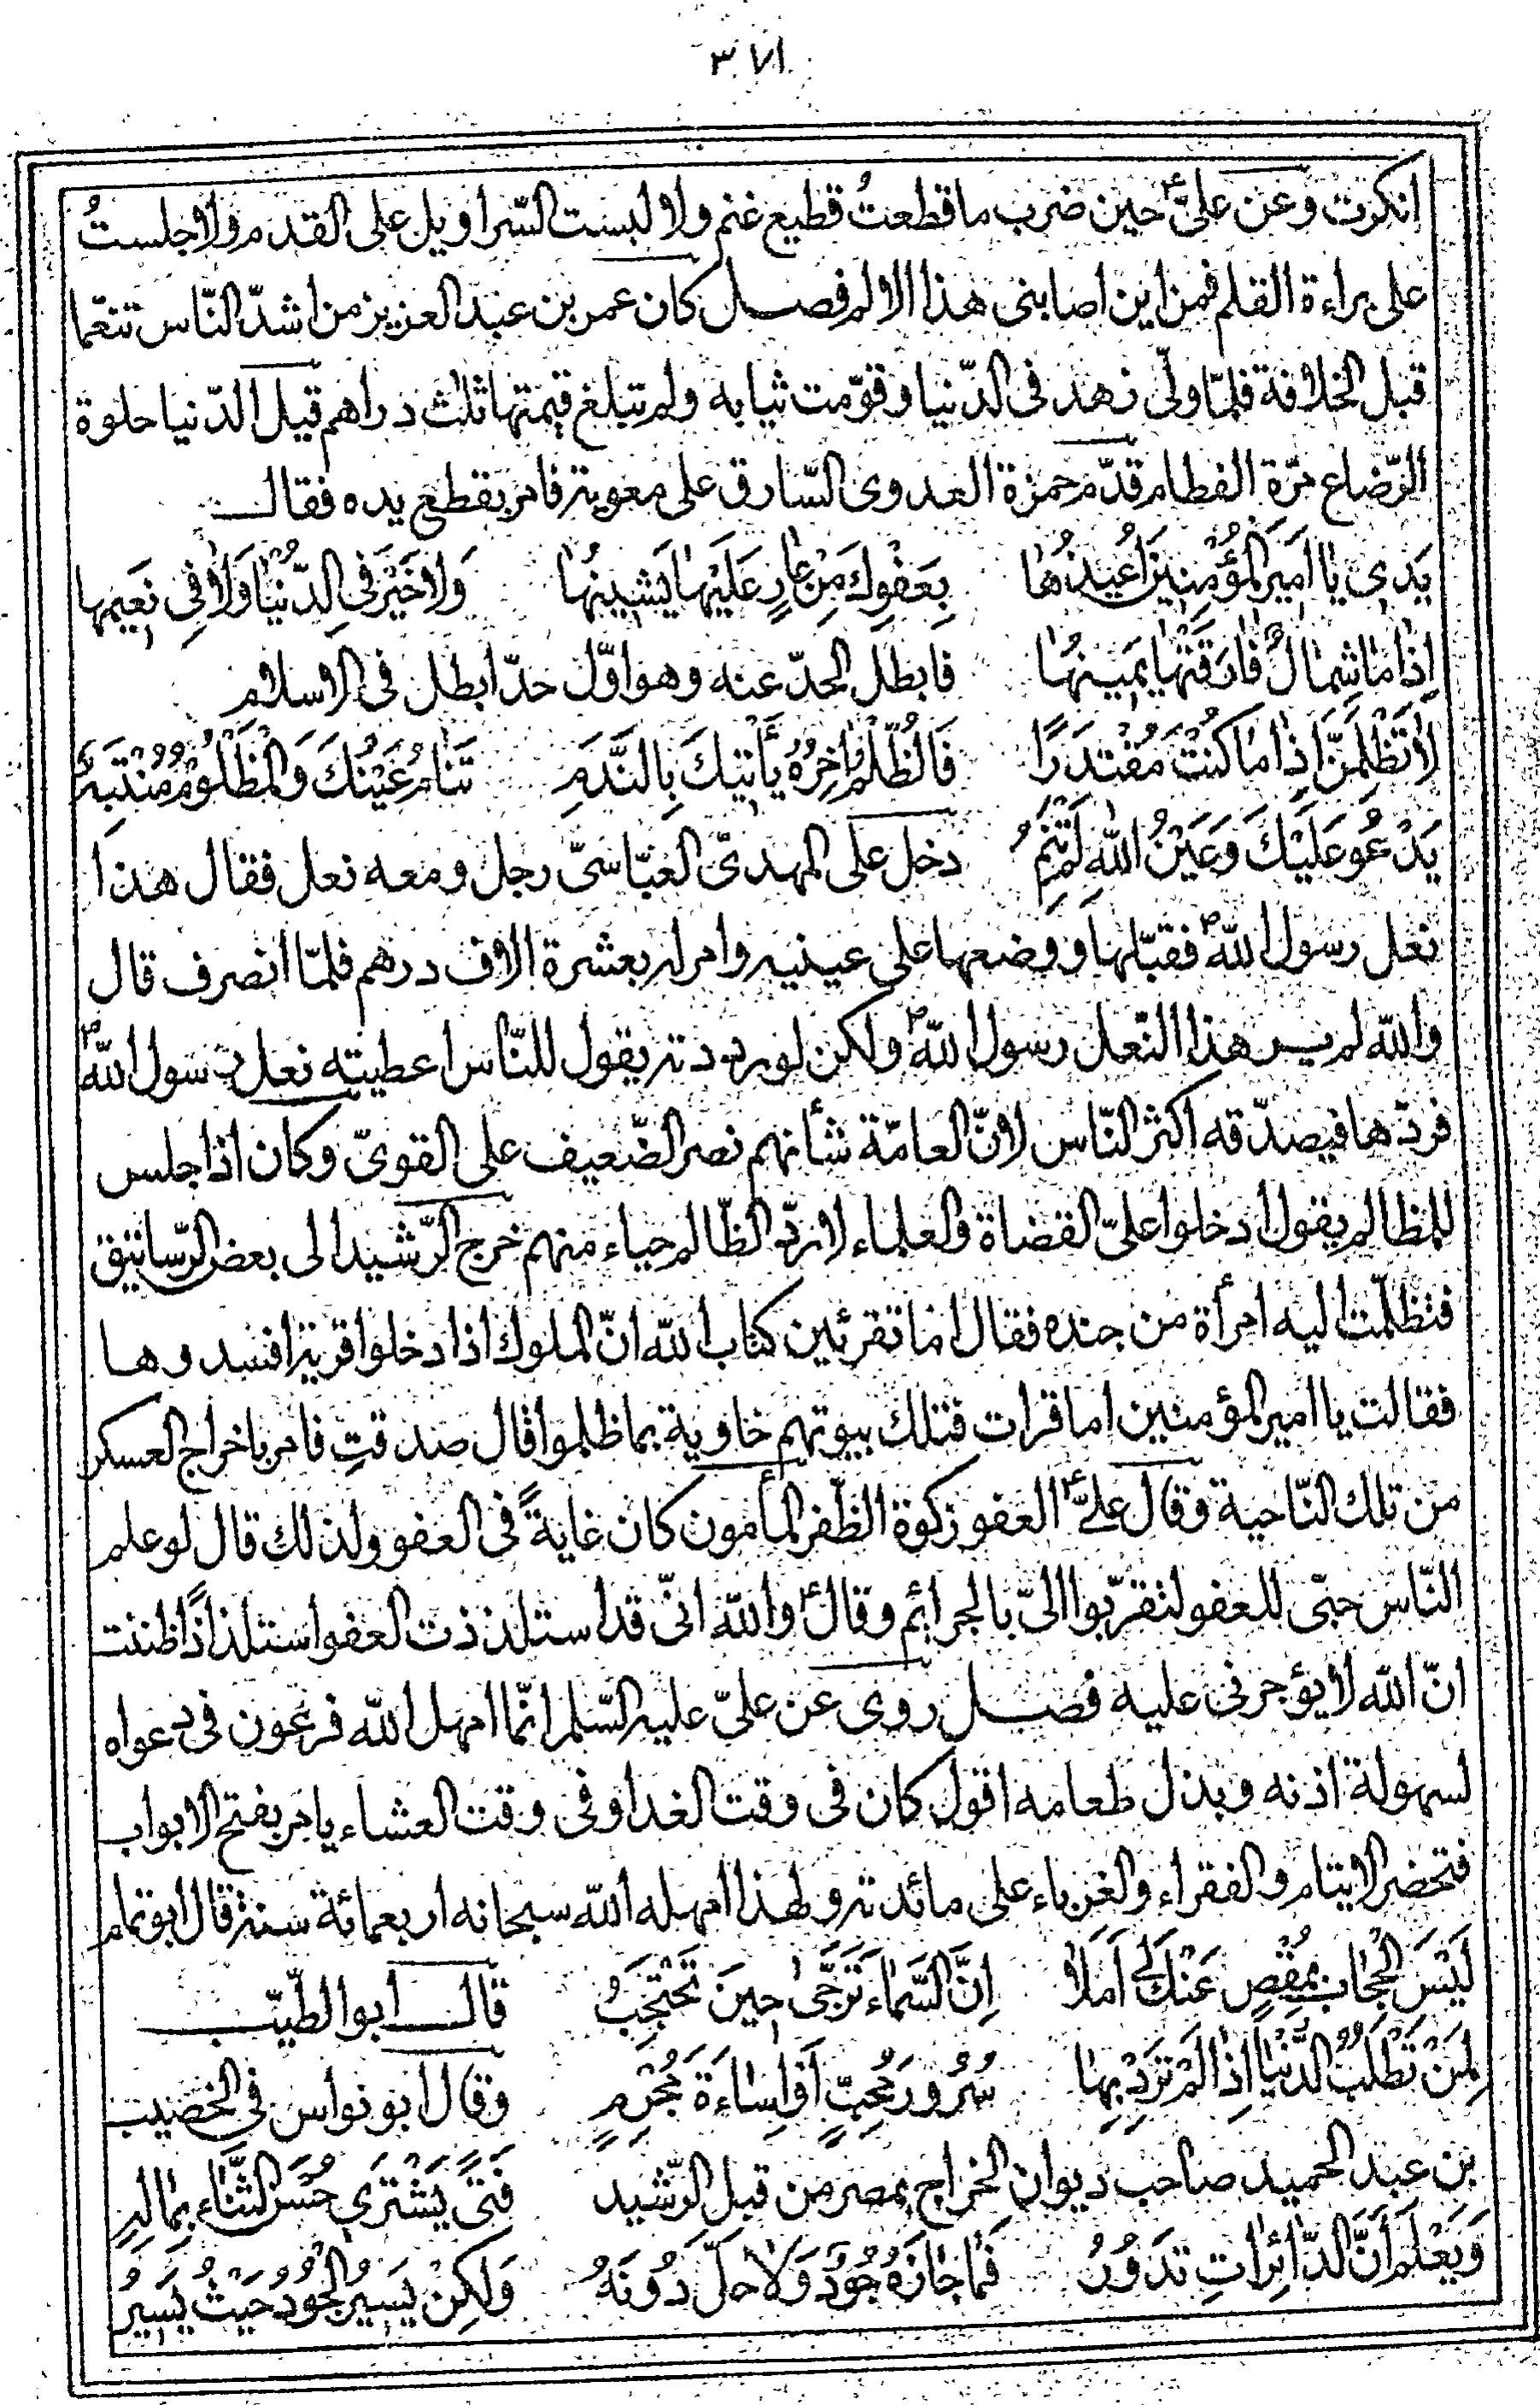 ٣٧١
انكرت وعن علىّ ع حين ضرب ما قطعتُ قطيع غنم ولا لبست السّراويل على القدم ولا جلستُ
على براءة القلم فمن اين اصابنى هذا الالم فصل كان عمر بن عبد العزيز من اشدّ النّاس تنعّما
قبل الخلافة فلمّا ولّى زهد فى الدّنيا وقوّمت ثيابه ولم تبلغ قيمتها ثلث دراهم قيل الدّنيا حلوة
الرّضاع مرّة الفطام قدّم حمزة العدوى السّارق على معوية فامر بقطع يده فقال
يَدى يا اَميرَ المُؤْمِنينَ اُعيذُها بِعَفْوِكَ مِنْ عارٍ عَلَيْها يَشينُها وَلا خَيْرَ فِى الدُّنْيا وَلا فى نَعيمِها
اِذا ما شِمالٌ فارَقَتْها يَمينُها فابطل الحدّ عنه وهو اوّل حدّ ابطل فى الاسلام
لا تَظْلِمَنَّ اِذا ما كُنْتَ مُقْتَدِرًا فَالظُّلْمُ اخِرُهُ يَأْتيكَ بِالنَّدَمِ تَنامُ عَيْنُكَ وَالْمَظْلُومُ مُنْتَبِهٌ
يَدْعُو عَلَيْكَ وَعَيْنُ اللهِ لَمْ تَنَمْ دخل على المهدىّ العبّاسىّ رجل ومعه نعل فقال هذا
نعل رسول الله ص فقبّلها ووضعها على عينيه وامر له بعشرة الاف درهم فلمّا انصرف قال
والله لم ير هذا النّعل رسول الله ص ولكن لو رددته يقول للنّاس اعطيته نعل رسول الله ص
فردّها فيصدّقه اكثر النّاس لانّ العامّة شأنهم نصر الضّعيف على القوىّ وكان اذا جلس
للمظالم يقول ادخلوا علىّ القضاة والعلماء لانردّ الظّالم حياء منهم خرج الرّشيد الى بعض الرّساتيق
فتظلّمت اليه امرأة من جنده فقال اما تقرئين كتاب الله انّ الملوك اذا دخلوا قرية افسدوها
فقالت يا امير المؤمنين اما قرات فتلك بيوتهم خاوية بما ظلموا قال صدقتِ فامر باخراج العسكر
من تلك النّاحية وقال علىّ ع العفو زكوة الظّفر المأمون كان غايةً فى العفو ولذلك قال لو علم
النّاس حبّى للعفو لتقرّبوا الىّ بالجرائم وقال ع والله انّى قد استلذذت العفو استلذاذًا ظننت
انّ الله لا يؤجرنى عليه فصل روى عن علىّ عليه السّلم انّما امهل الله فرعون فى دعواه
لسهولة اذنه وبذل طعامه اقول كان فى وقت الغدا وفى وقت العشاء يامر بفتح الابواب
فتحضر الايتام والفقراء والغرباء على مائدته ولهذا امهله الله سبحانه اربعمائة سنة قال ابو تمام
لَيْسَ الْحِجابُ بِمُقْصٍ عَنْكَ لى اَمَلاً اِنَّ السَّماءَ تُرَجّى حينَ تَحْتَجِبُ قال ابو الطّيّب
لِمَنْ تَطْلُبُ الدُّنْيا اِذا لَمْ تُرِدْ بِها سُرُورَ مُحِبٍّ اَوْ اِساءَةَ مُجْرِمٍ وقال ابو نواس فى الخصيب
بن عبد الحميد صاحب ديوان الخراج بمصر من قبل الرّشيد فَتىً يَشْتَرى حُسْنَ الثَّناءِ بِمالِهِ
وَيَعْلَمُ اَنَّ الدّائِراتِ تَدُورُ فَما جازَهُ جُودٌ وَلا حَلَّ دُونَهُ وَلكِنْ يَسيرُ الْجُودُ حَيْثُ يَسيرُ